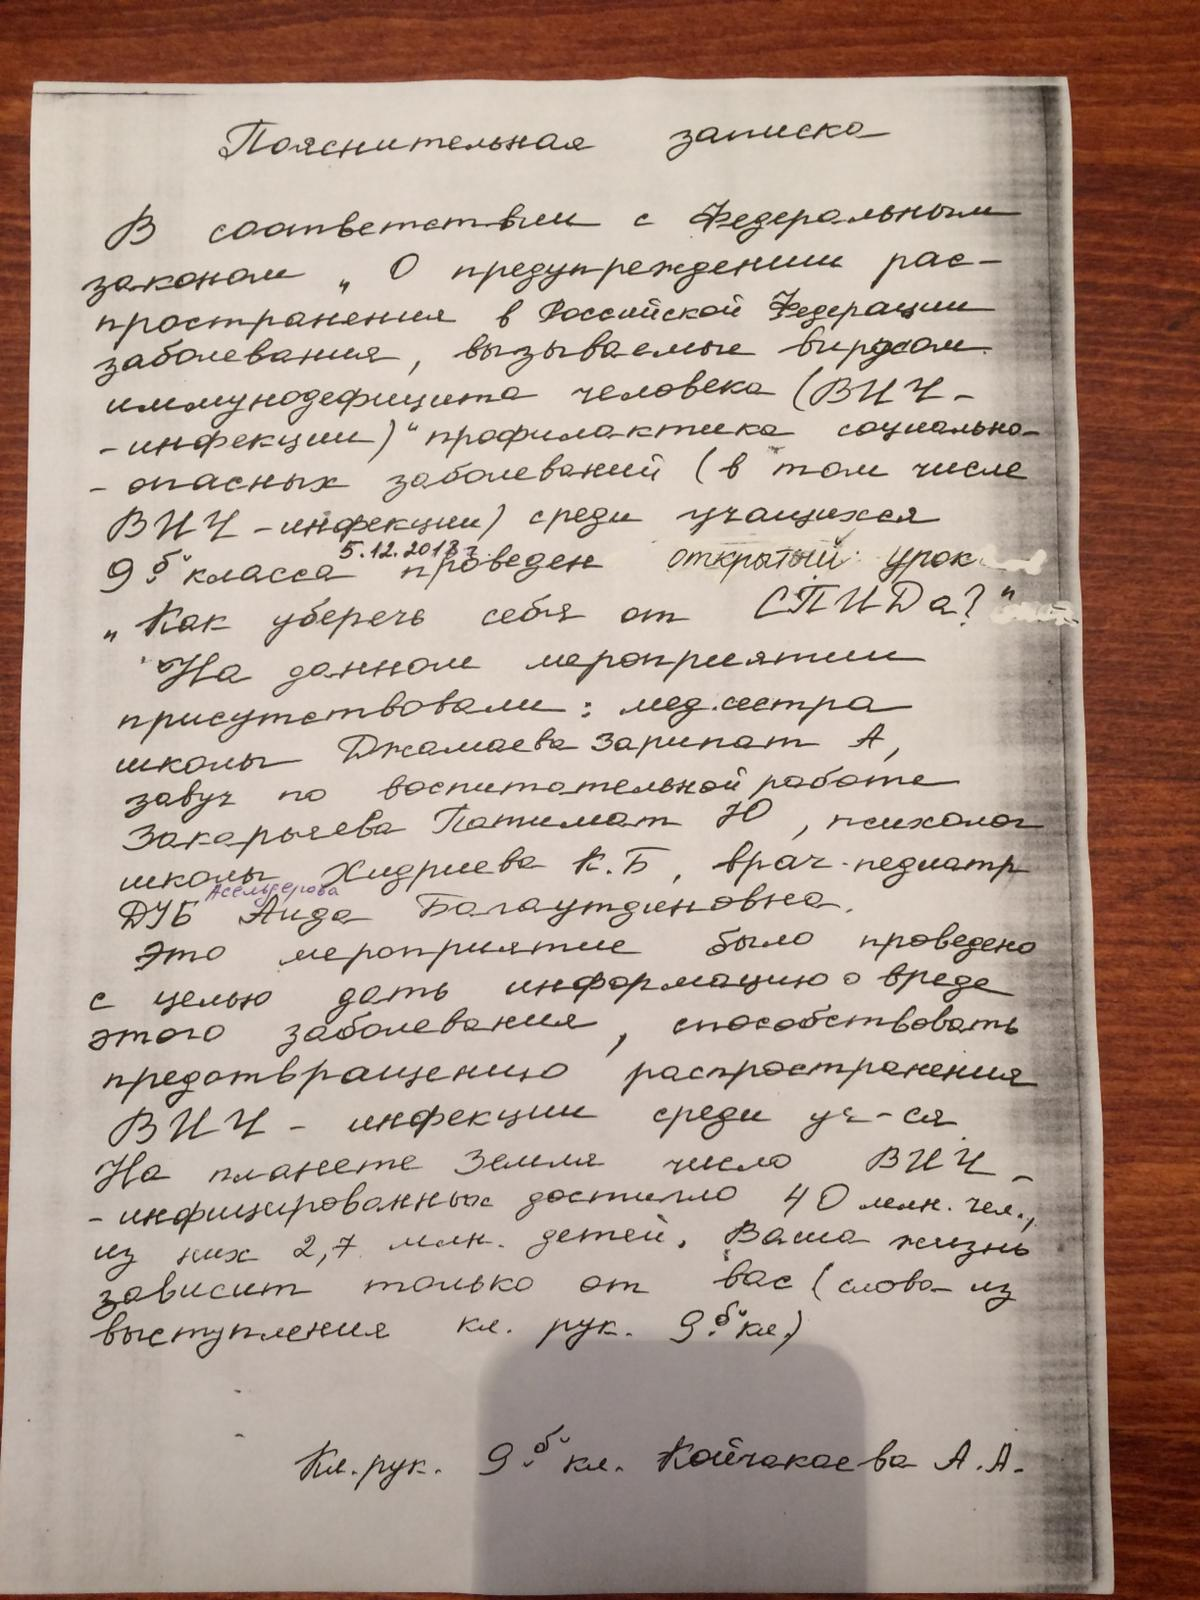 Пояснительная записка
В соответствии с Федеральным
законом „О предупреждении рас-
пространения в Российской Федерации
заболевания, вызываемые вирусом
иммунодефицита человека (ВИЧ-
-инфекции)“ профилактика социально-
-опасных заболеваний (в том числе
ВИЧ-инфекции) среди учащихся
5.12.2013 г
9 „б“ класса проведен открытый урок
„Как уберечь себя от СПИДа?“
На данном мероприятии
присутствовали: мед.сестра
школы Джамаева Зарипат А,
завуч по воспитательной работе
Закарычева Патимат Ю, психолог
школы Хидриева К.Б, врач-педиатр
Асельдерова
ДУБ Аида Багаутдиновна.
Это мероприятие было проведено
с целью дать информацию о вреде
этого заболевания, способствовать
предотвращению распространения
ВИЧ-инфекции среди уч-ся
На планете Земля число ВИЧ-
-инфицированных достигло 40 млн. чел.,
из них 2,7 млн. детей. Ваша жизнь
зависит только от вас (слова из
выступления кл. рук. 9 „б“ кл.)
Кл. рук. 9 „б“ кл. Койчакаева А.А.